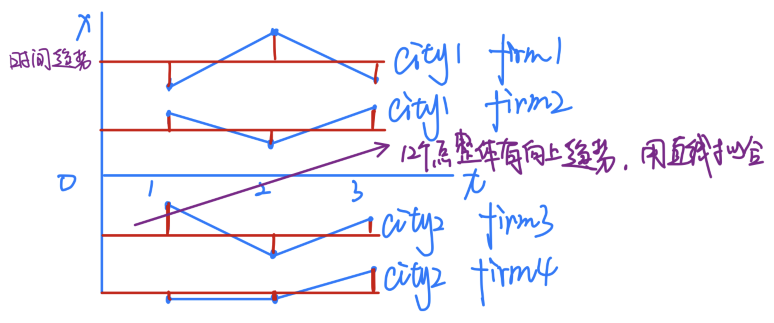 x
时间趋势
city1 firm1
city1 firm2
12个点整体有向上趋势，用直线拟合
0 1 2 3 t
city2 firm3
city2 firm4